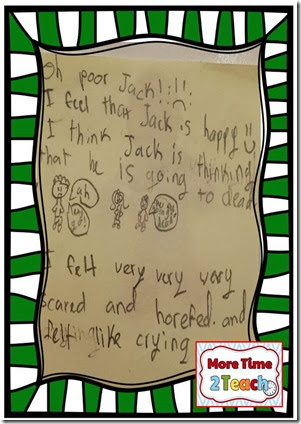 Oh poor Jack!!!!!
I feel that Jack is happy
I think Jack is
that he is thinking!
is going to dead
I felt very very very
scared and horefed. and
felt like crying
More Time
2Teach